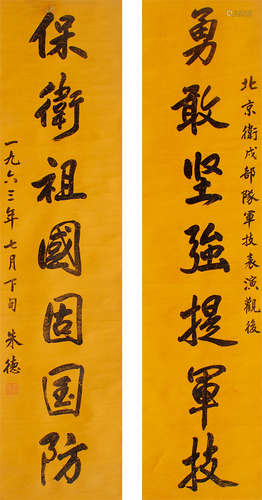 北京衛戍部隊軍技表演觀後
勇敢坚強提軍技
保衛祖國固国防
一九六三年七月下旬 朱德